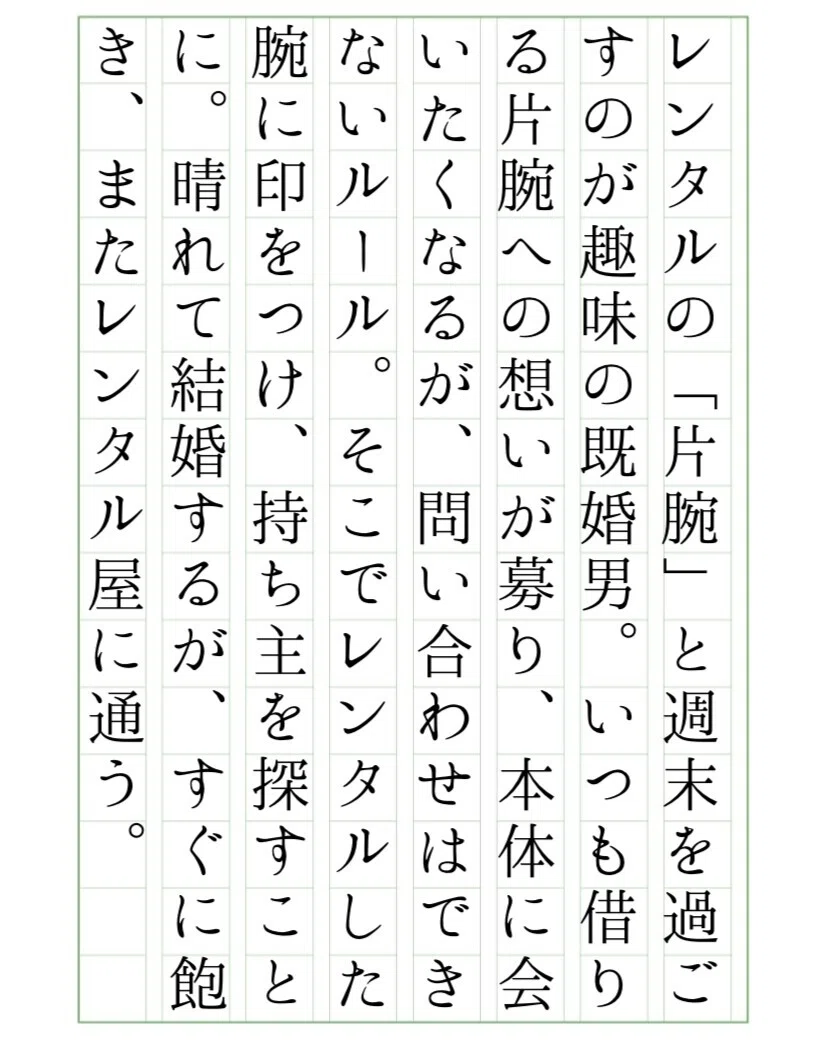 レンタルの「片腕」と週末を過ご
すのが趣味の既婚男。いつも借り
る片腕への想いが募り、本体に会
いたくなるが、問い合わせはでき
ないルール。そこでレンタルした
腕に印をつけ、持ち主を探すこと
に。晴れて結婚するが、すぐに飽
き、またレンタル屋に通う。